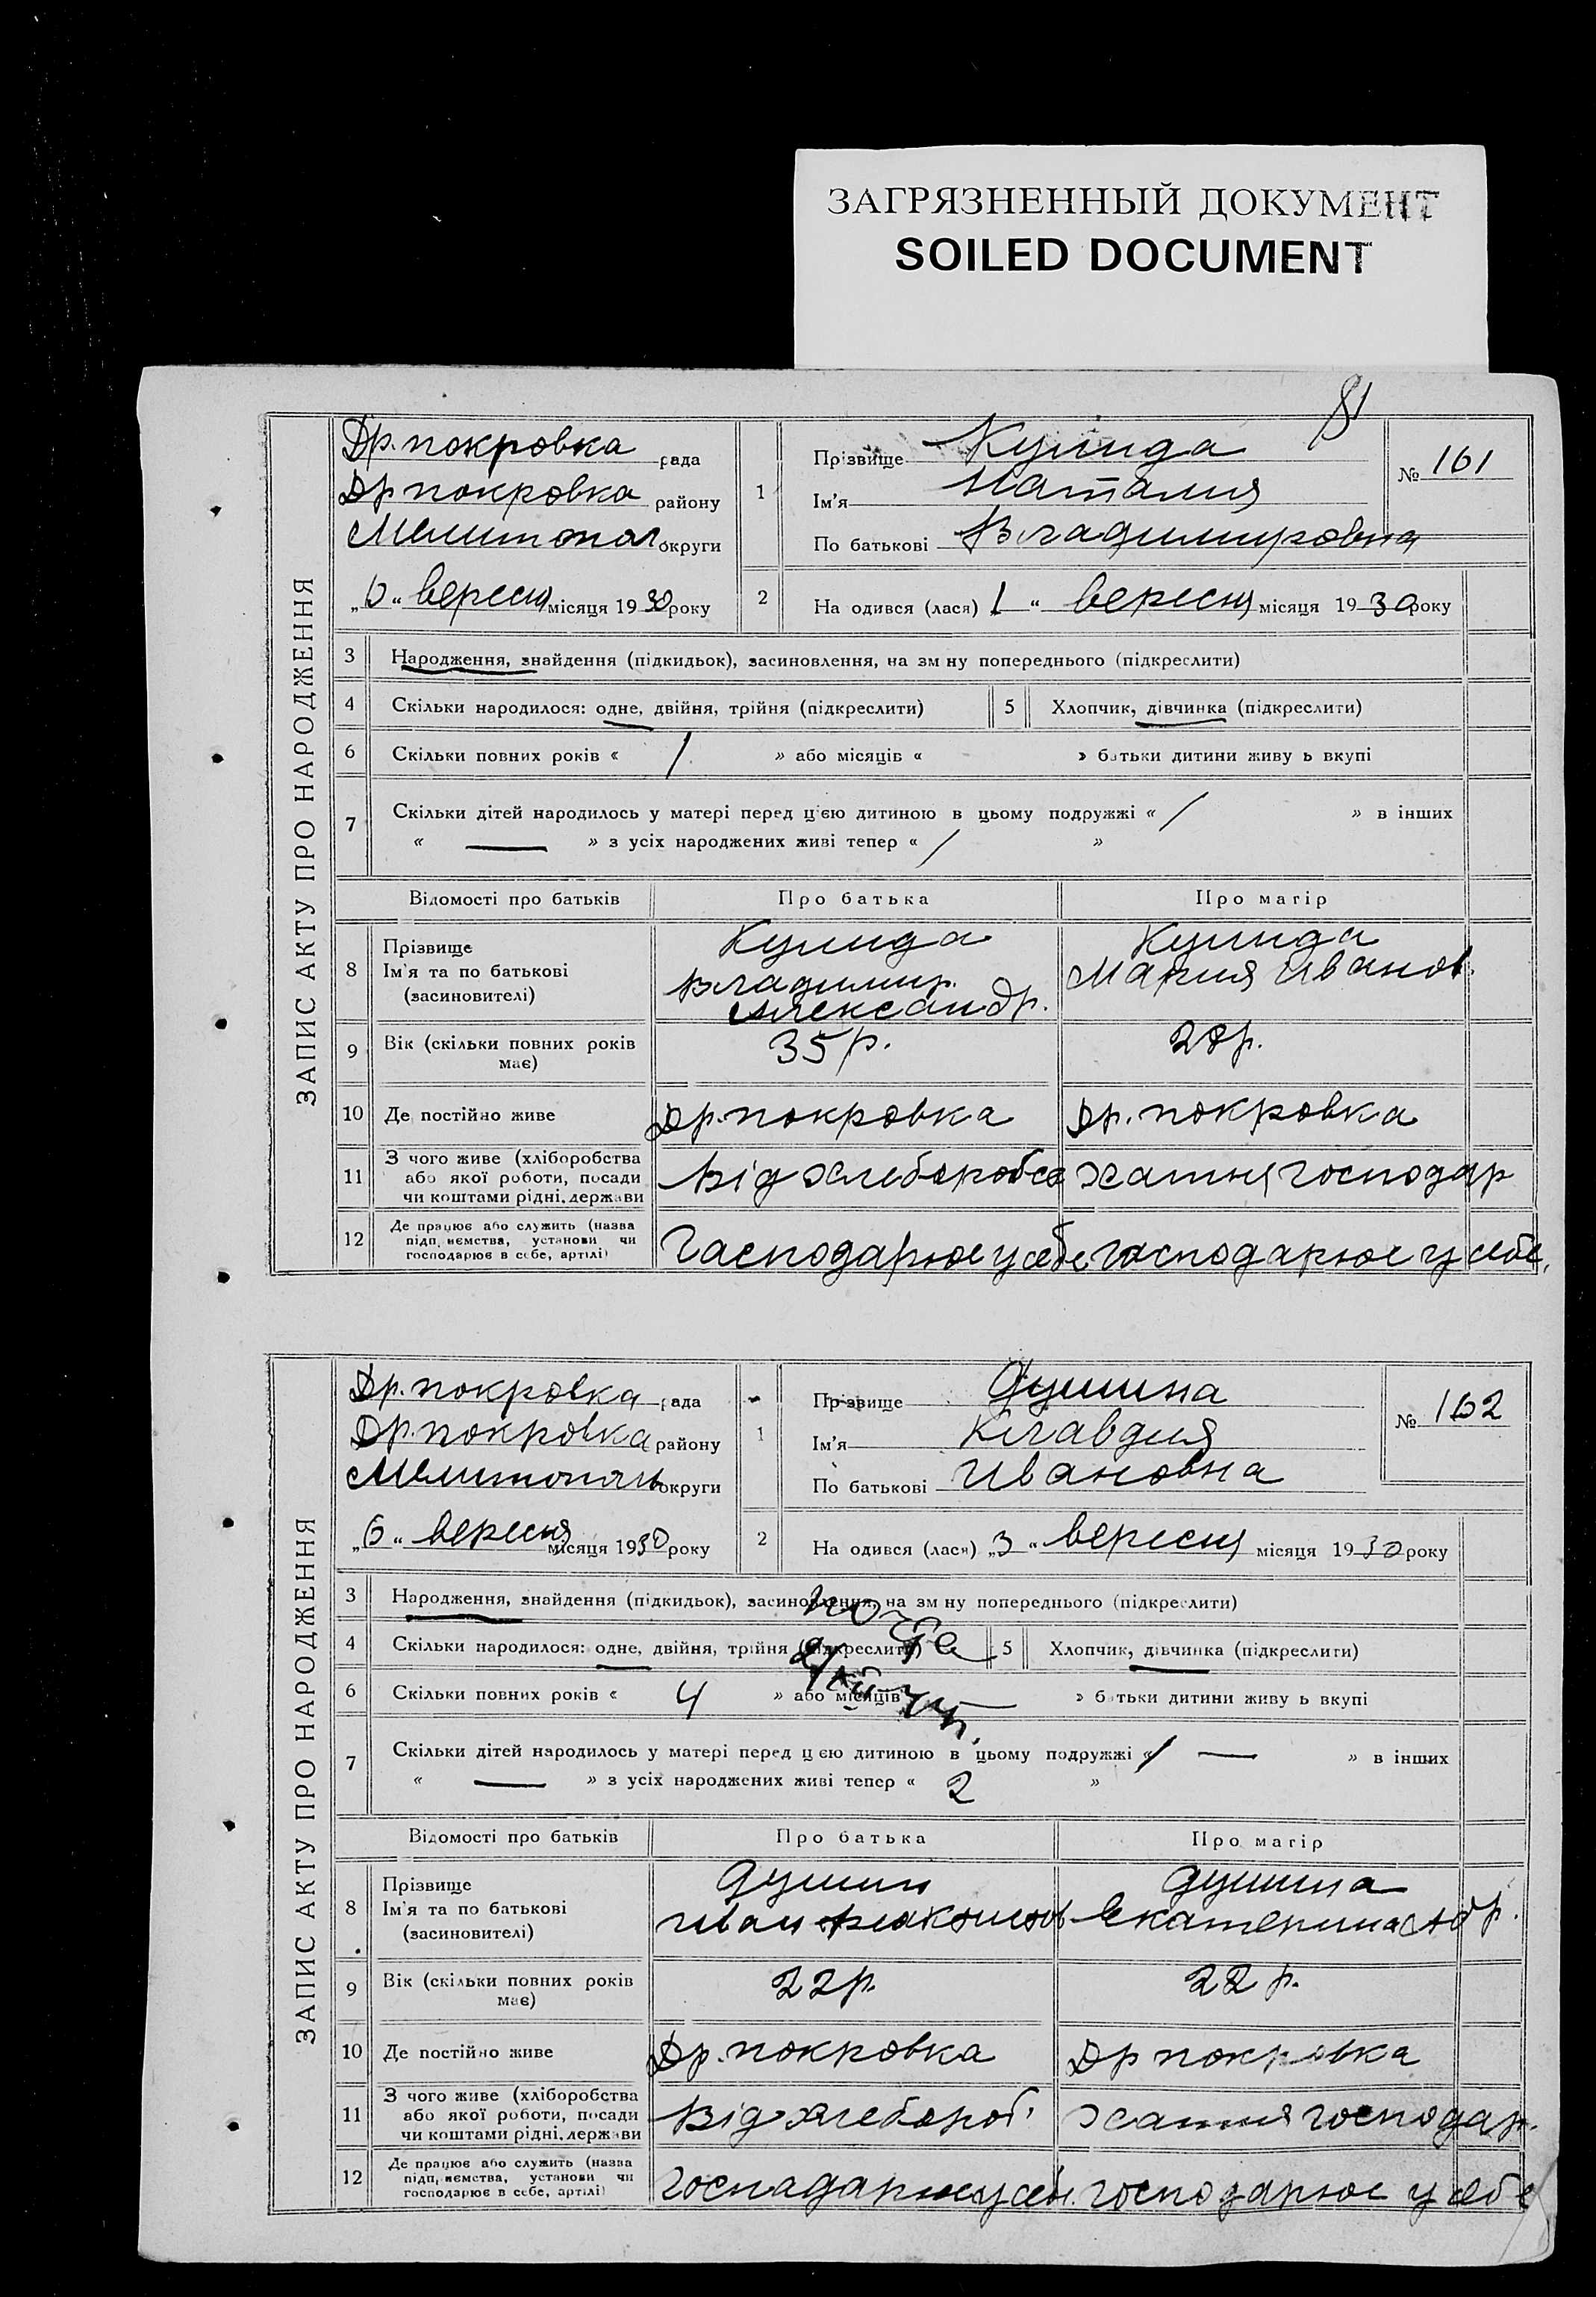 ЗАГРЯЗНЕННЫЙ ДОКУМЕНТ
SOILED DOCUMENT
81
ЗАПИС АКТУ ПРО НАРОДЖЕННЯ
Др. покровка рада
Др покровка району
Мелитопол округи
„6“ вересня місяця 1930 року
1
Прізвище Кулида
Ім'я Наталия
По батькові Владимировна
№ 161
2
На одився (лася) 1 “ вересня місяця 1930 року
3 Народження, знайдення (підкидьок), засиновлення, на зм ну попереднього (підкреслити)
4 Скільки народилося: одне, двійня, трійня (підкреслити) 5 Хлопчик, дівчинка (підкреслити)
6 Скільки повних років « 1 » або місяців « » батьки дитини живу ь вкупі
7 Скільки дітей народилось у матері перед цією дитиною в цьому подружжі « 1 » в інших
« — » з усіх народжених живі тепер « 1 »
Відомості про батьків Про батька Про матір
8 Прізвище
Ім'я та по батькові
(засиновителі)
Кулида
Владимир.
Александр.
Кулида
Мария Иванов.
9 Вік (скільки повних років
має)
35 р. 28 р.
10 Де постійно живе Др. покровка Др. покровка
11 З чого живе (хліборобства
або якої роботи, посади
чи коштами рідні, держави
Від хлеборобсв хатня господар
12 Де працює або служить (назва
підп, иємства, установи чи
господарює в себе, артілі)
Гасподарюе у себе господарюе у себе,
ЗАПИС АКТУ ПРО НАРОДЖЕННЯ
Др. покровка рада
Др. покровка району
Мелитополь округи
„6“ вересня місяця 1930 року
1
Прізвище Душина
Ім'я Клавдия
По батькові Ивановна
№ 162
2
На одився (лася) „3“ вересня місяця 1930 року
3 Народження, знайдення (підкидьок), засиновлення, на зм ну попереднього (підкреслити)
4 Скільки народилося: одне, двійня, трійня (підкреслити) 5 Хлопчик, дівчинка (підкреслити)
6 Скільки повних років « 4 » або місяців » батьки дитини живу ь вкупі
7 Скільки дітей народилось у матері перед цією дитиною в цьому подружжі « 1 — » в інших
« — » з усіх народжених живі тепер « 2 »
Відомості про батьків Про батька Про матір
8 Прізвище
Ім'я та по батькові
(засиновителі)
Душин
Иван
Душина
Екатерина
9 Вік (скільки повних років
має)
22 р. 22 р.
10 Де постійно живе Др. покровка Др покровка
11 З чого живе (хліборобства
або якої роботи, посади
чи коштами рідні, держави
Від хлебороб. хатня господар.
12 Де працює або служить (назва
підп, иємства, установи чи
господарює в себе, артілі)
госпадарюе у себе. господарюе у себе